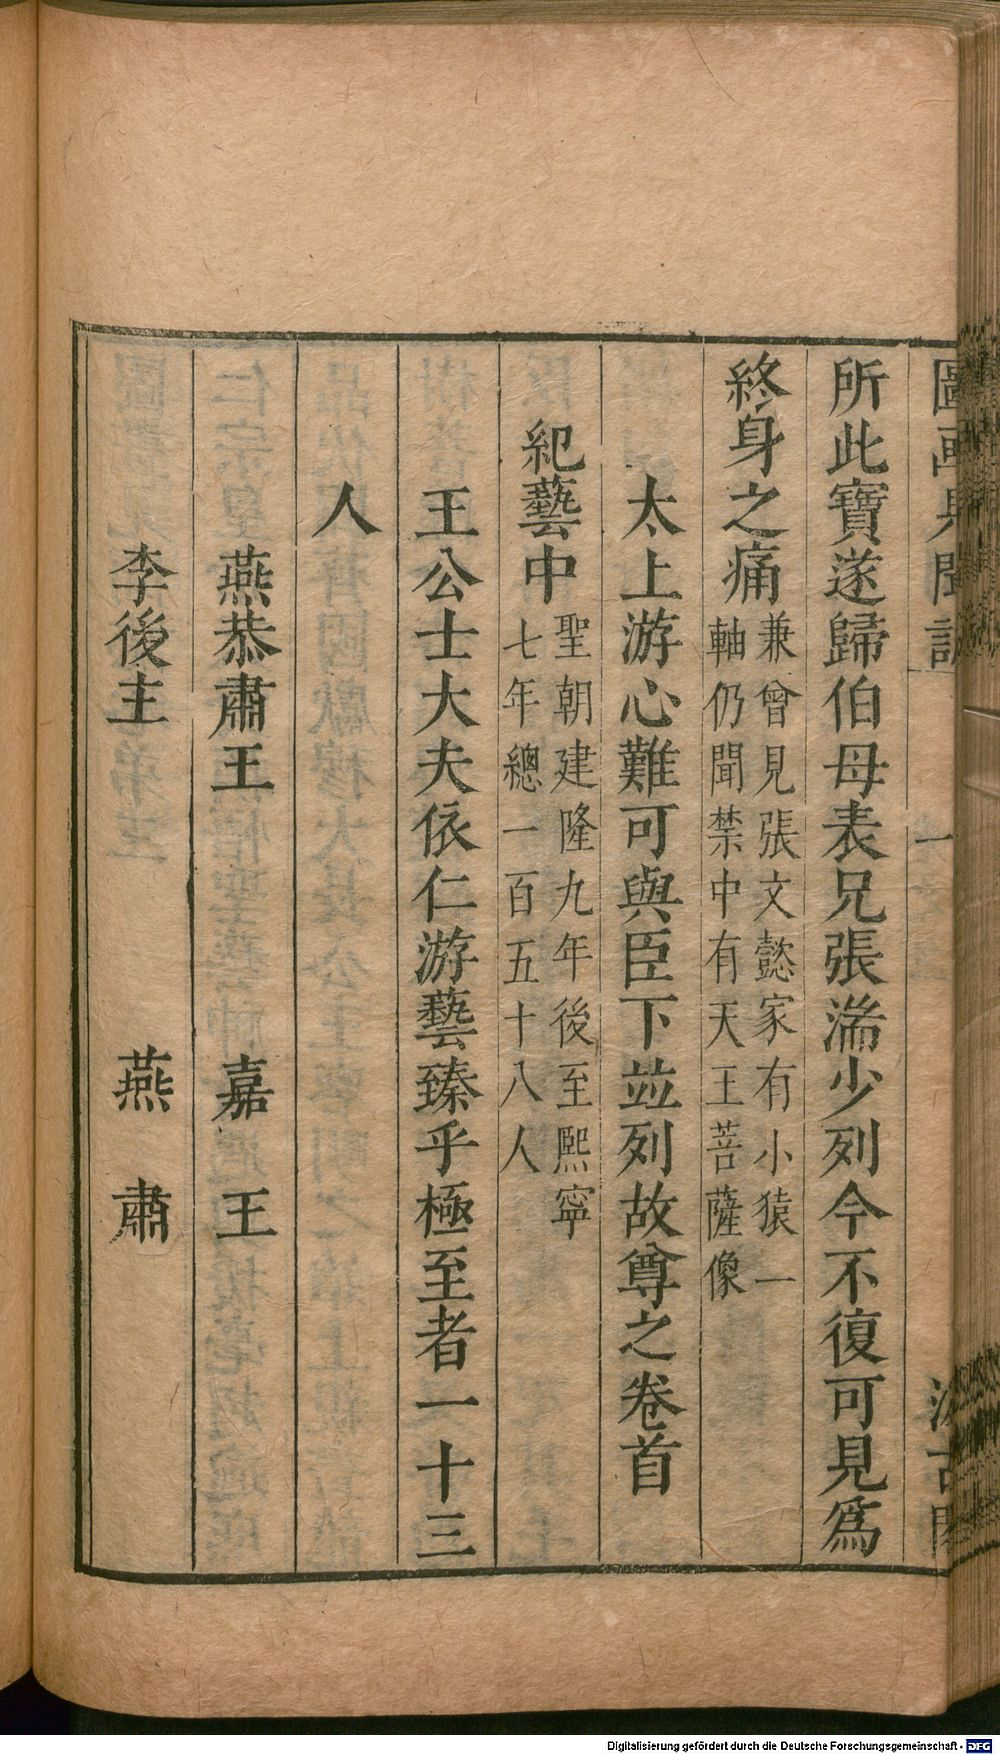 圖畫見聞誌 一 汲古閣
所此寶遂歸伯母表兄張湍少列今不復可見爲
終身之痛兼曾見張文懿家有小猿一
軸仍聞禁中有天王菩薩像
太上游心難可與臣下並列故尊之卷首
紀藝中聖朝建隆九年後至熙寧
七年總一百五十八人
王公士大夫依仁游藝臻乎極至者一十三
人
燕恭肅王 嘉王
李後主 燕肅
Digitalisierung gefördert durch die Deutsche Forschungsgemeinschaft - DFG